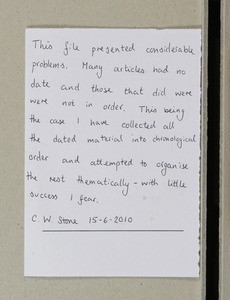 This file presented considerable
problems. Many articles had no
date and those that did were
were not in order. This being
the case I have collected all
the dated material into chronological
order and attempted to organise
the rest thematically - with little
success I fear.
C. W. Stone 15-6-2010